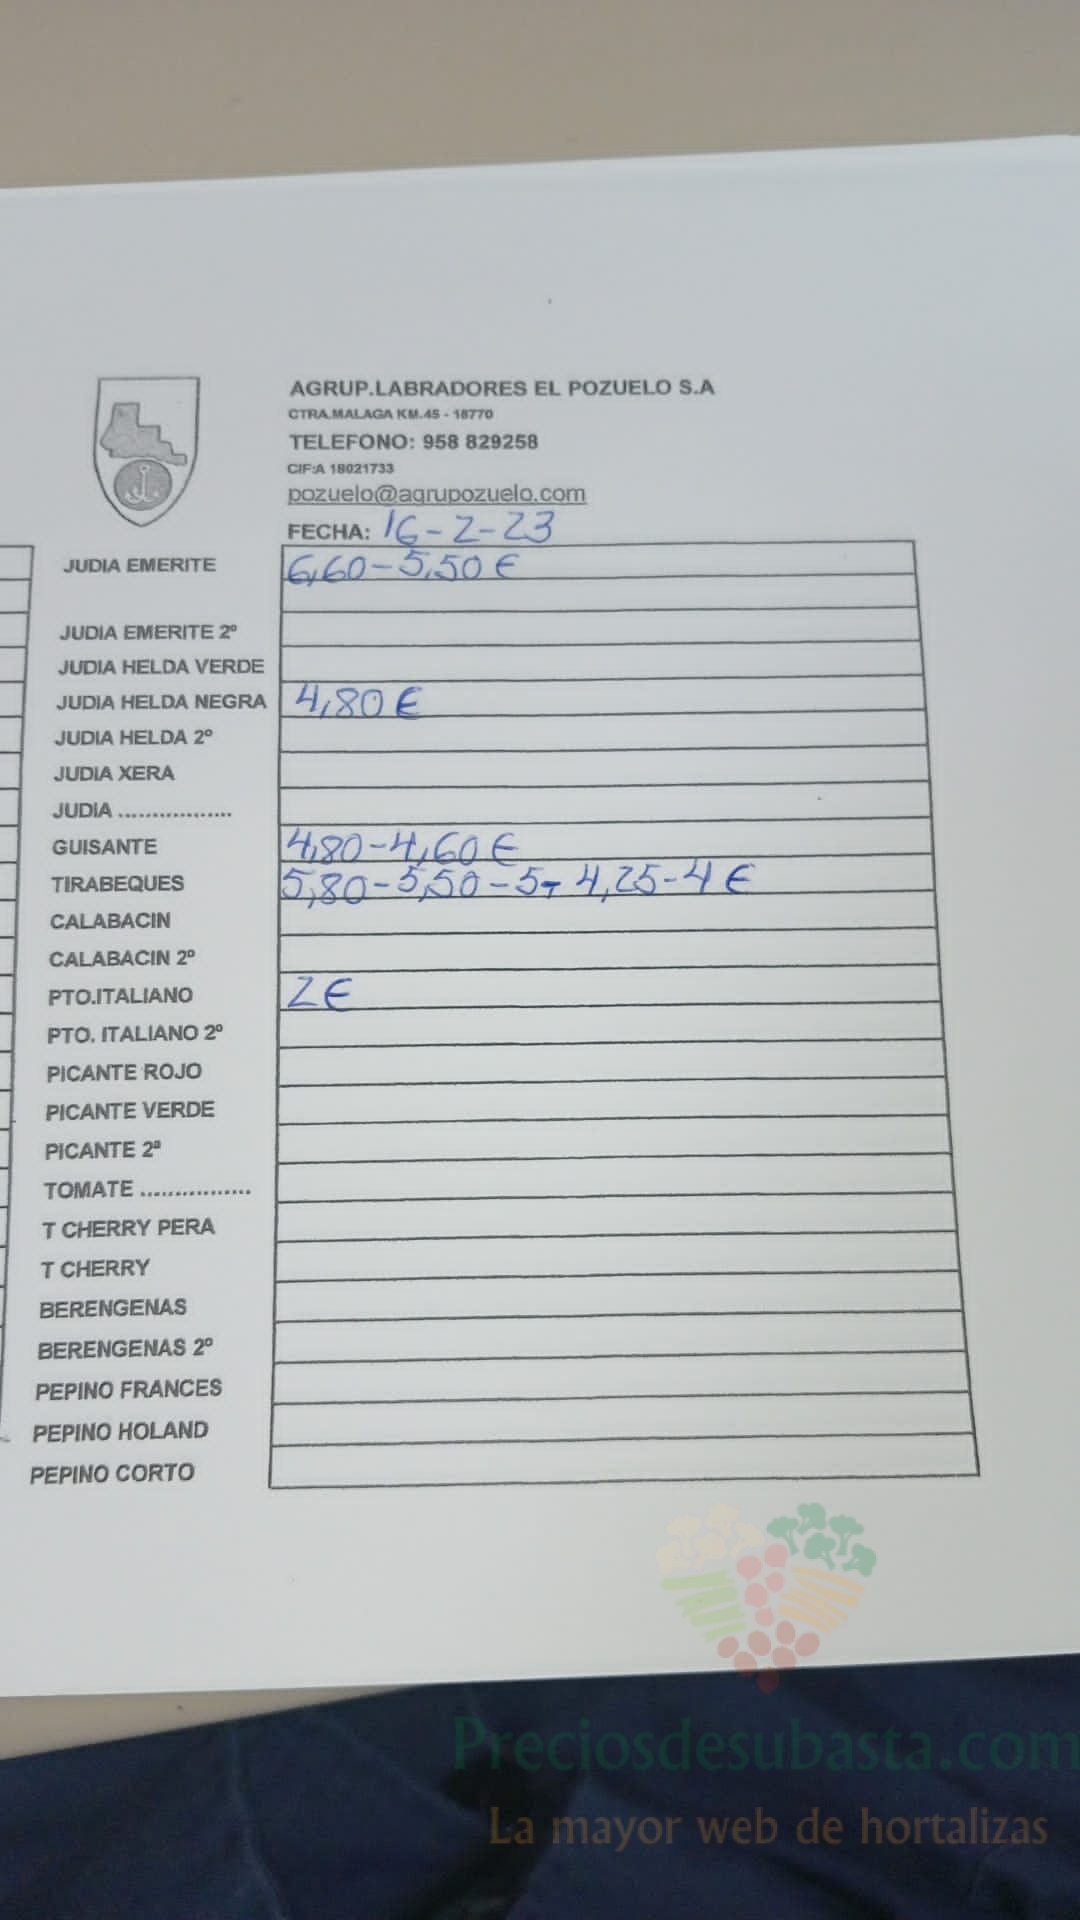 AGRUP.LABRADORES EL POZUELO S.A
CTRA.MALAGA KM.45 - 18770
TELEFONO: 958 829258
CIF:A 18021733
pozuelo@agrupozuelo.com
FECHA: 16-2-23
JUDIA EMERITE 6,60-5,50 €
JUDIA EMERITE 2º
JUDIA HELDA VERDE
JUDIA HELDA NEGRA 4,80 €
JUDIA HELDA 2º
JUDIA XERA
JUDIA .................
GUISANTE 4,80-4,60 €
TIRABEQUES 5,80-5,50-5,- 4,25-4 €
CALABACIN
CALABACIN 2º
PTO.ITALIANO 2 €
PTO. ITALIANO 2º
PICANTE ROJO
PICANTE VERDE
PICANTE 2ª
TOMATE ................
T CHERRY PERA
T CHERRY
BERENGENAS
BERENGENAS 2º
PEPINO FRANCES
PEPINO HOLAND
PEPINO CORTO
Preciosdesubasta.com
La mayor web de hortalizas